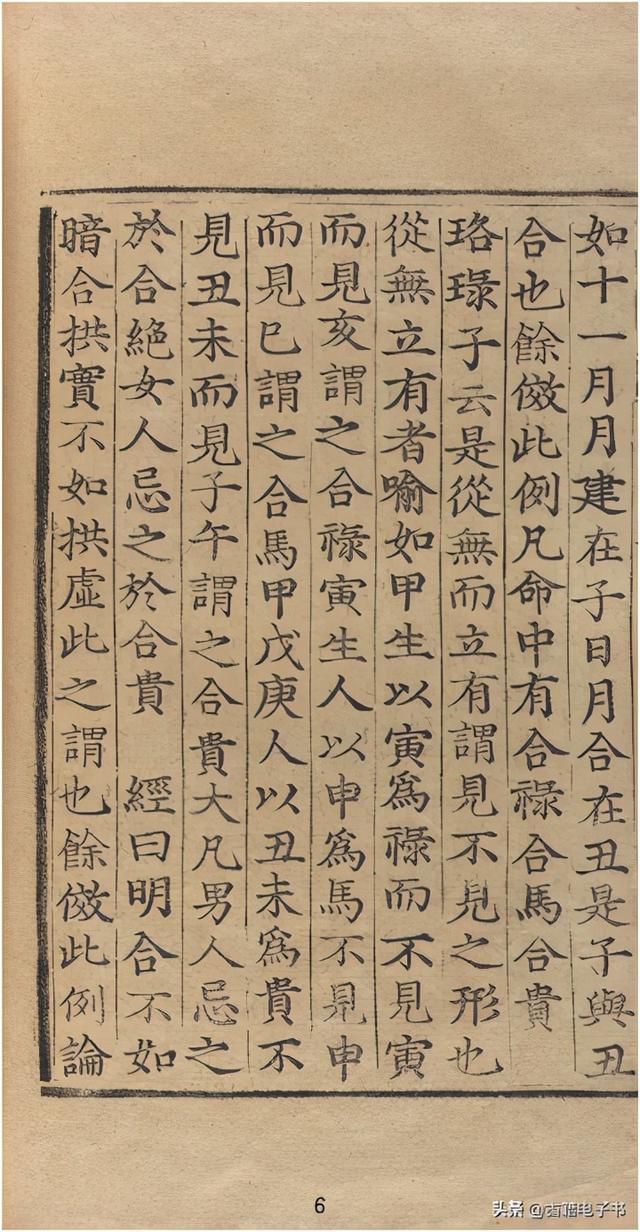 如十一月月建在子日月合在丑是子與丑
合也餘倣此例凡命中有合祿合馬合貴
珞琭子云是從無而立有謂見不見之形也
從無立有者喻如甲生以寅爲祿而不見寅
而見亥謂之合祿寅生人以申爲馬不見申
而見巳謂之合馬甲戊庚人以丑未爲貴不
見丑未而見子午謂之合貴大凡男人忌之
於合絕女人忌之於合貴　經曰明合不如
暗合拱實不如拱虛此之謂也餘倣此例論
6
头条 @古籍电子书